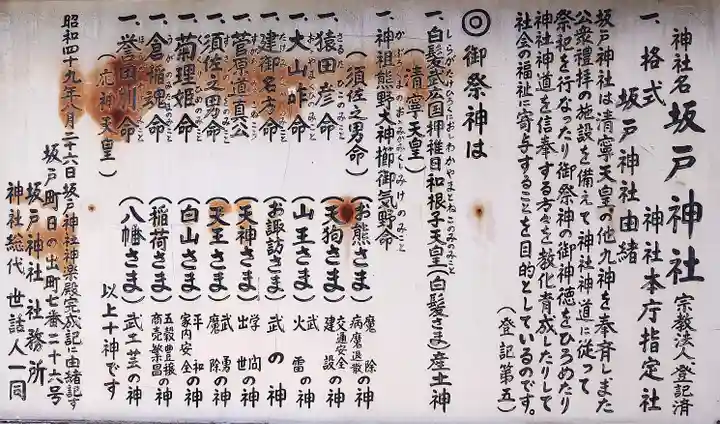 神社名 坂戸神社 宗教法人登記済
一、格式 神社本庁指定社
坂戸神社由緒
坂戸神社は清寧天皇の他九神を奉斉しまた
公衆禮拝の施設を備えて神社神道に従って
祭祀を行なったり御祭神の御神徳をひろめたり
神社神道を信奉する方々を教化育成したりして
社会の福祉に寄与することを目的としているのです。
(登記第五)
◎御祭神は
一、白髪武広国押稚日和根子天皇(白髪さま)産土神
(清寧天皇)
一、神祖熊野大神櫛御気野命
(須佐之男命)(お熊さま)魔除病魔退散の神
一、猿田彦命(天狗さま)交通安全建設の神
一、大山咋命(山王さま)武火雷の神
一、建御名方命(お諏訪さま)武の神
一、菅原道真公(天神さま)学問出世の神
一、須佐之男命(天王さま)武勇魔除の神
一、菊理姫命(白山さま)平和家内安全の神
一、倉稲魂命(稲荷さま)五穀豊穣商売繁昌の神
一、誉田別命(八幡さま)武工芸の神
(応神天皇)
以上十神です
昭和四十九年八月二十六日坂戸神社神楽殿完成記に由緒記す
坂戸町日の出町七番二十六号
坂戸神社社務所
神社総代世話人一同